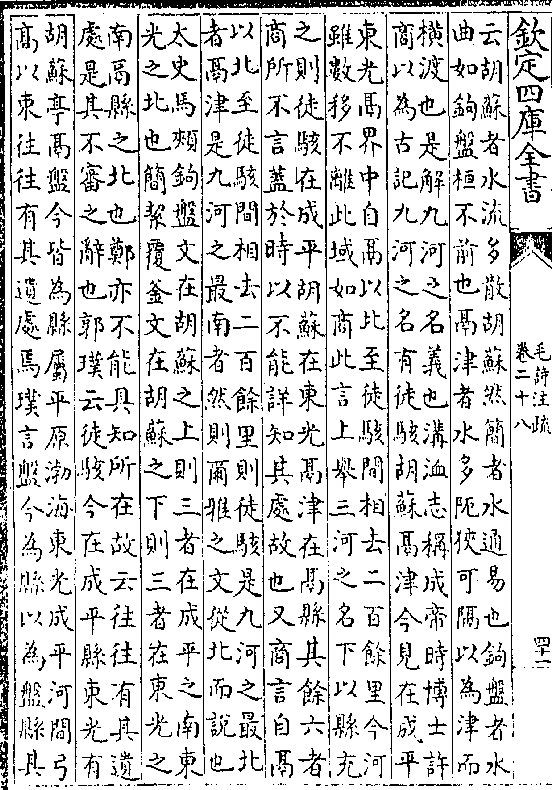 欽定四庫全書
毛詩注疏
卷二十八
四十一
云胡蘇者水流多散胡蘇然簡者水通易也鉤盤者水
曲如鉤盤桓不前也鬲津者水多阨狹可隔以為津而
橫渡也是解九河之名義也溝洫志稱成帝時博士許
商以為古記九河之名有徒駭胡蘇鬲津今見在成平
東光鬲界中自鬲以北至徒駭間相去二百餘里今河
雖數移不離此域如商此言上舉三河之名下以縣充
之則徒駭在成平胡蘇在東光鬲津在鬲縣其餘六者
商所不言蓋於時以不能詳知其處故也又商言自鬲
以北至徒駭間相去二百餘里則徒駭是九河之最北
者鬲津是九河之最南者然則爾雅之文從北而說也
太史馬頰鉤盤文在胡蘇之上則三者在成平之南東
光之北也簡絜覆釜文在胡蘇之下則三者在東光之
南鬲縣之北也鄭亦不能具知所在故云往往有其遺
處是其不審之辭也郭璞云徒駭今在成平縣東光有
胡蘇亭鬲盤今皆為縣屬平原渤海東光成平河間弓
高以東往往有其遺處焉璞言盤今為縣以為盤縣其